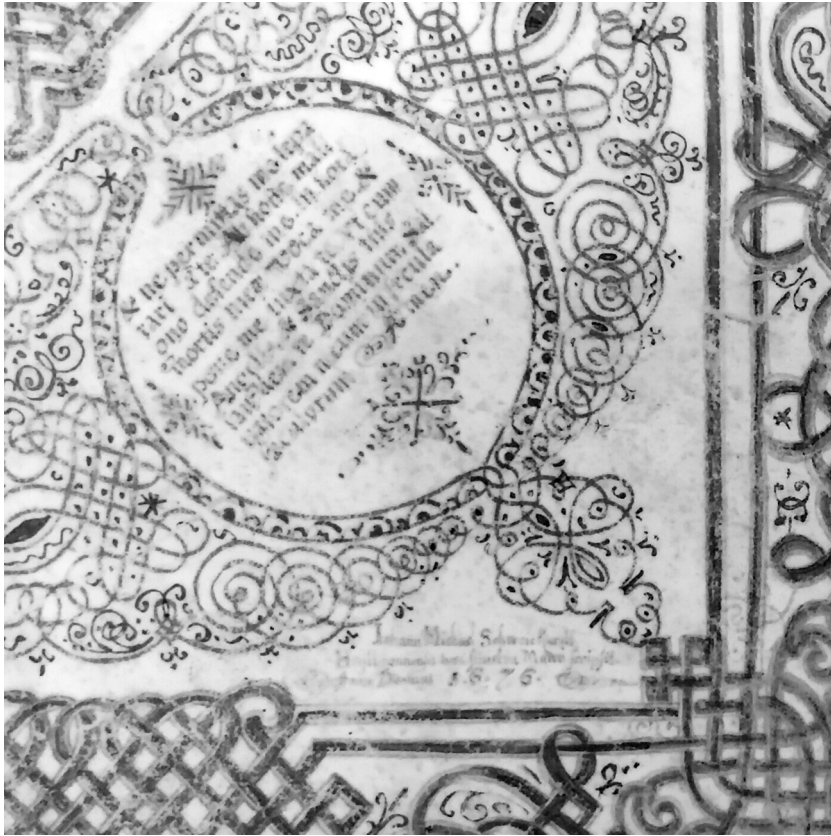 & ne permittas me sepa
rari A te Ab hoste mali
gno defende me. in hora
mortis mee Voca me &
pone me iuxta te ut cum
Angelis & Sanctis tuis
laudem te Dominum sal
vatorem meum in secula
seculorum Amen..
Johann Michael
Manu
Anno Domini 1.6.7.6.